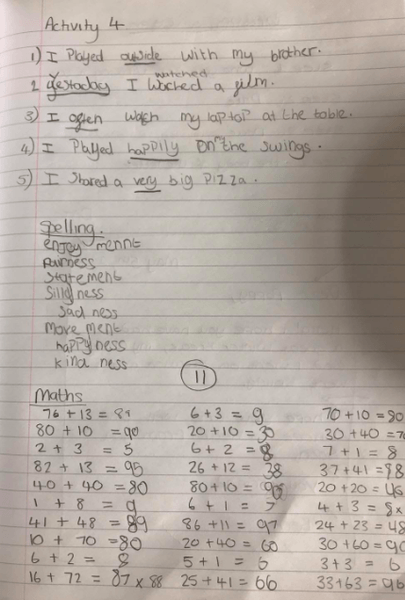 Activity 4
1) I Played outside with my brother.
watched
2 Yestoday I Wached a film.
3) I often watch my laptop at the table.
4) I Played happily on the swings.
5) I Shared a very big Pizza.
Spelling.
enjoy mennt
Fairness
Statement
Silly ness
Sad ness
move ment
happyness
kind ness
11
Maths
76 + 13 = 89 6 + 3 = 9 70 + 10 = 80
80 + 10 = 90 20 + 10 = 30 30 + 40 = 70
2 + 3 = 5 6 + 2 = 8 7 + 1 = 8
82 + 13 = 95 26 + 12 = 38 37 + 41 =
40 + 40 = 80 80 + 10 = 90 20 + 20 =
1 + 8 = 9 6 + 1 = 7 4 + 3 =
41 + 48 = 89 86 + 11 = 97 24 + 23 =
10 + 70 = 80 20 + 40 = 60 30 + 60 = 90
6 + 2 = 8 5 + 1 = 6 3 + 3 = 6
16 + 72 = 87 x 88 25 + 41 = 66 33 + 63 = 96